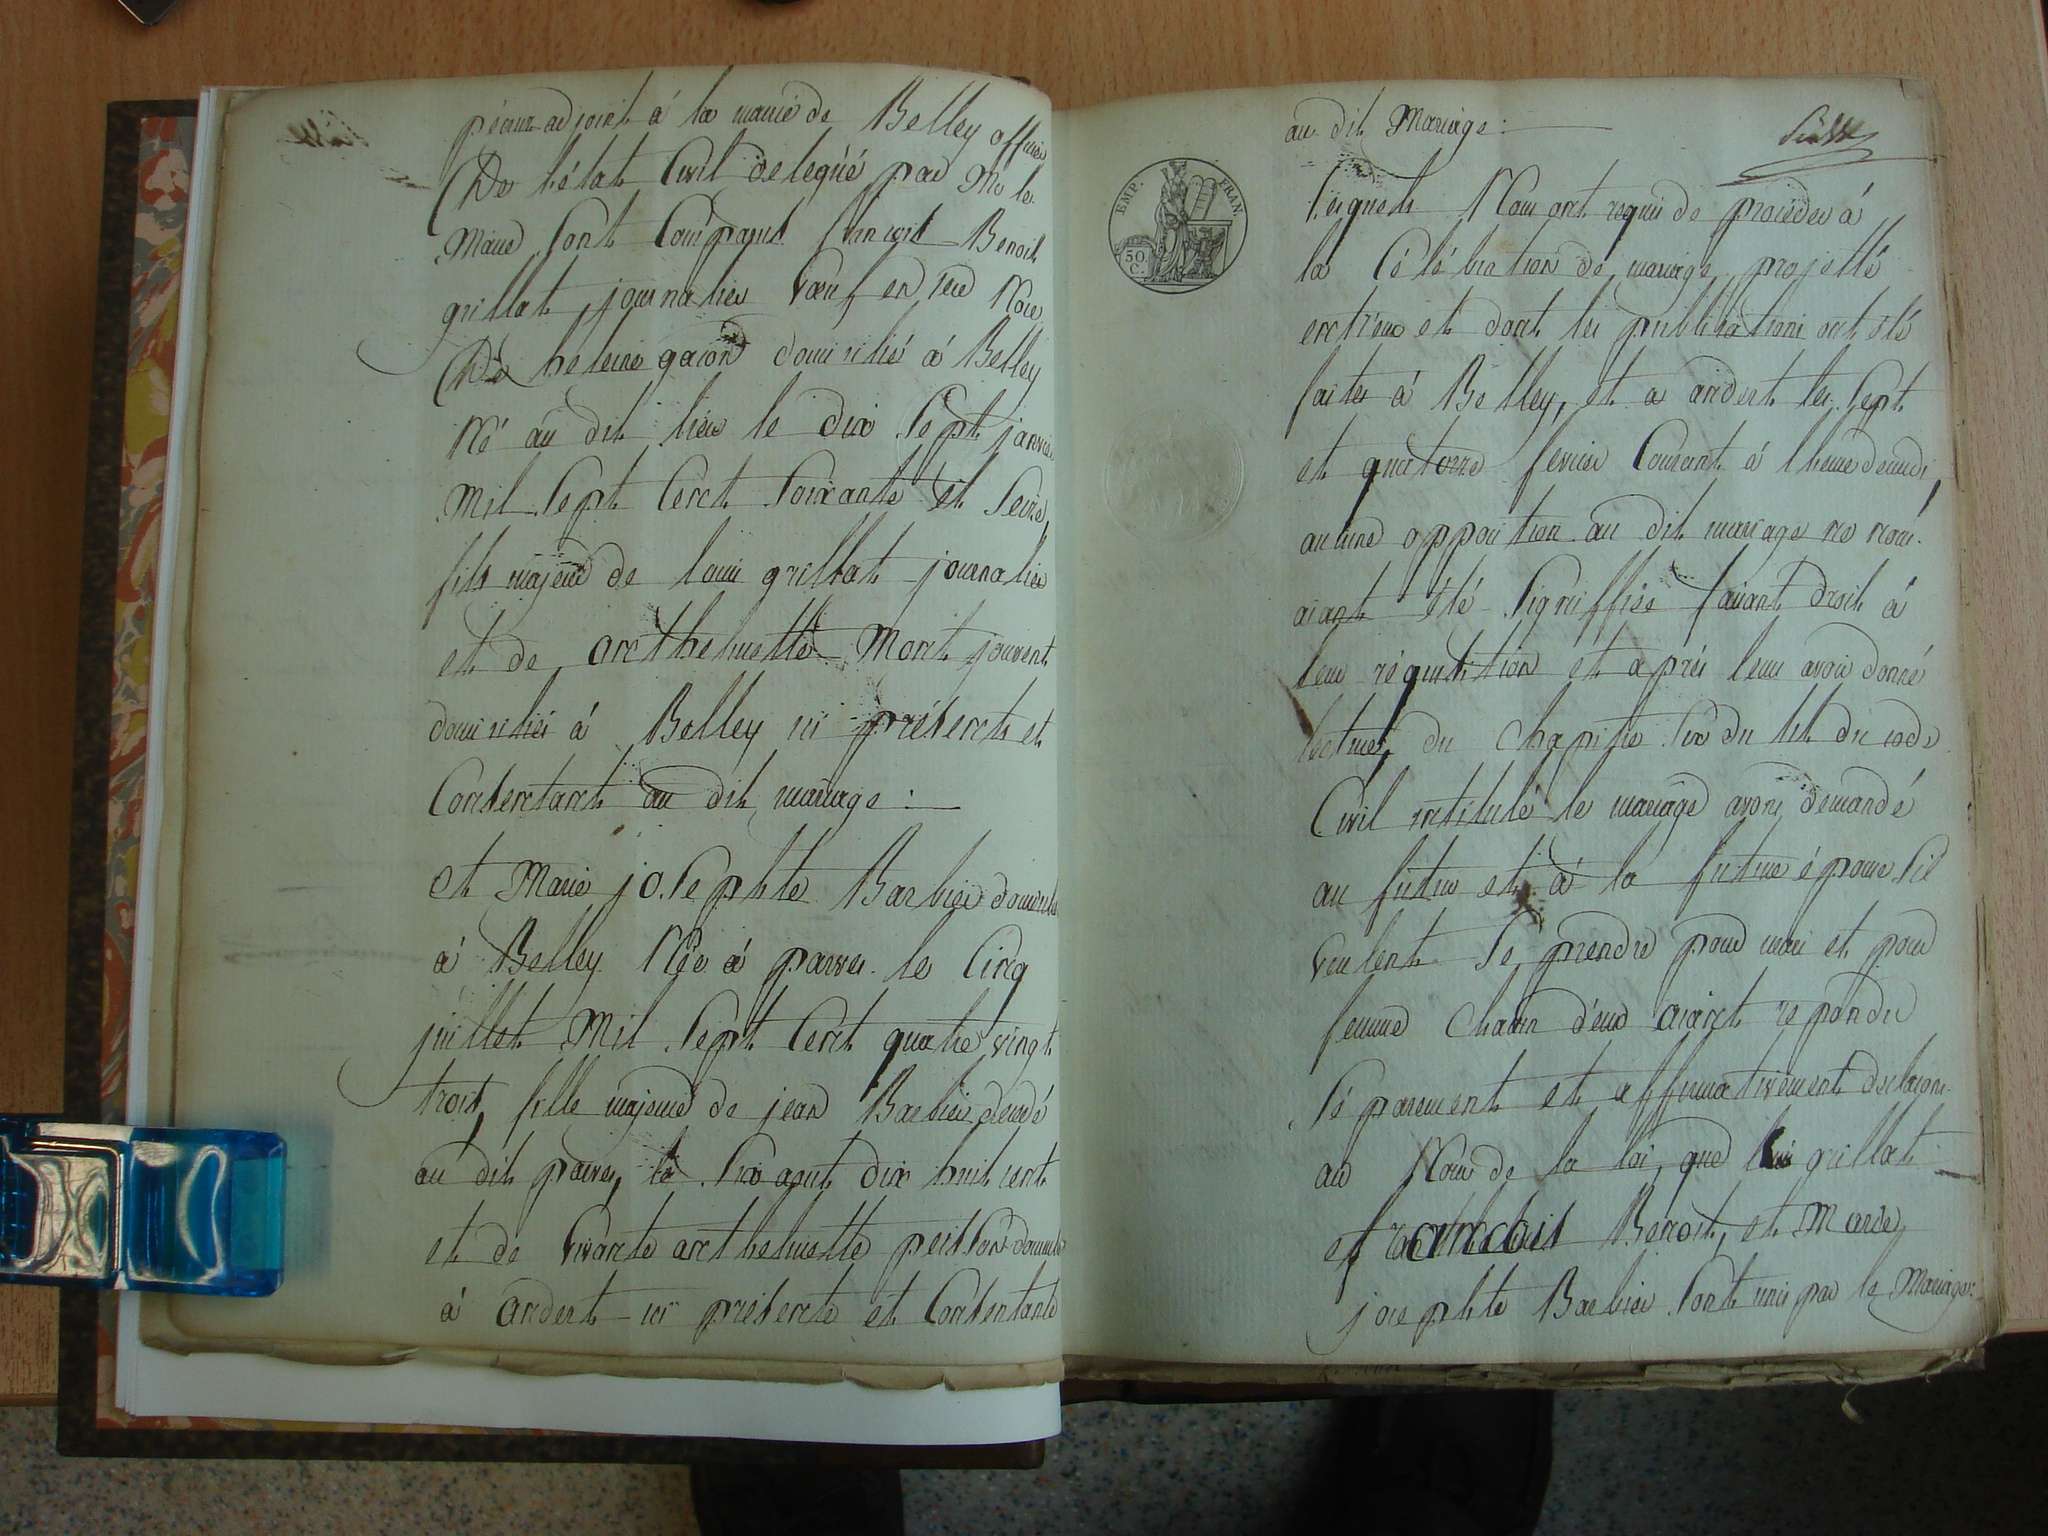 adjoint á la mairie de Belley officier
De l'état Civil delegué par Mr le
Maire Sont Comparus francois Benoit
grillat journalier Voeuf en
De helene domicilié á Belley
Né au dit lieu le dix Sept janvier
Mil Sept Cent Soixante et Seize
fils majeur de Louis grillat journalier
et de anthelmette Morel jouvent
domiciliés á Belley ici présents et
Consentants au dit mariage :
et Marie josephte Barbier domiciliée
á Belley Née á parves le Cinq
juillet Mil Sept Cent quatre vingt
trois, fille majeure de jean Barbier décédé
au dit parves, le Six aout dix huit cent
et de vivante anthelmette domiciliée
á andert ici présente et Consentante
au dit Mariage :
EMP. FRAN.
50 C.
Lesquels Nous ont requis de procéder á
la Célébration de mariage projetté
entr'eux et dont les publications ont été
faites á Belley, et a andert les Sept
et quatorze fevrier Courant á l'heure de midi,
aucune opposition au dit mariage ne nous
aiant été Signiffiée faisant droit á
leur réquisition et après leur avoir donné
lecture, du Chapitre Six du tit du code
Civil intitulé le mariage avons demandé
au futur et á la future épouse S'il
veulent Se prendre pour mari et pour
femme Chacun d'eux aiant repondu
Séparement et affirmativement declarons
au Nom de la loi, que grillat
francois Benoit, et Marie
josephte Barbier Sont unis par le Mariage :